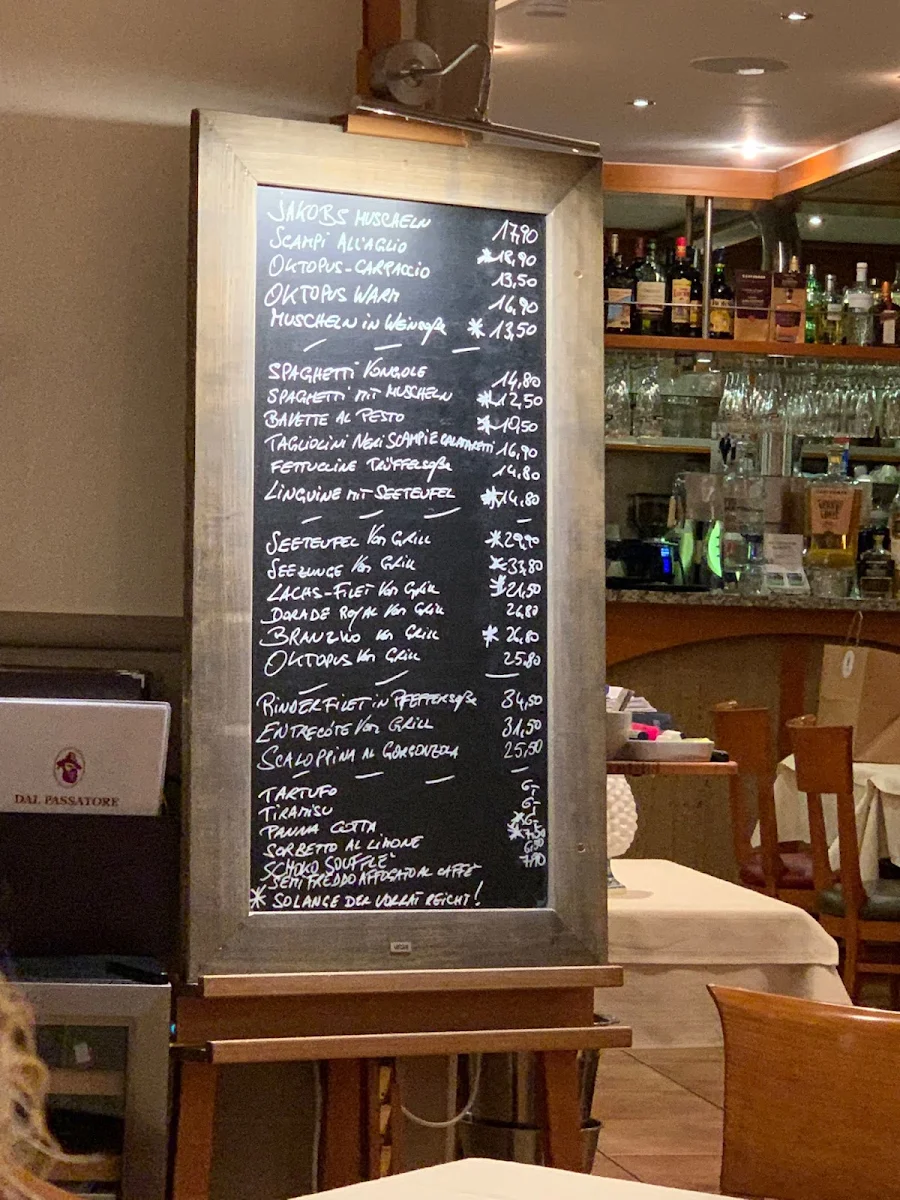 JAKOBS MUSCHELN 17,90
SCAMPI ALL'AGLIO *18,90
OKTOPUS-CARPACCIO 13,50
OKTOPUS WARM 16,90
MUSCHELN IN WEINSOßE * 13,50
SPAGHETTI VONGOLE 14,80
SPAGHETTI MIT MUSCHELN *12,50
BAVETTE AL PESTO *10,50
TAGLIOLINI NERI SCAMPI E CALAMARETTI 16,90
FETTUCCINE TRÜFFELSOßE 14,80
LINGUINE MIT SEETEUFEL *14,80
SEETEUFEL VOM GRILL *29,90
SEEZUNGE VOM GRILL *33,80
LACHS-FILET VOM GRILL *21,50
DORADE ROYAL VOM GRILL 26,80
BRANZINO VOM GRILL * 26,80
OKTOPUS VOM GRILL 25,80
RINDERFILET IN PFEFFERSOßE 34,50
ENTRECÔTE VOM GRILL 31,50
SCALOPPINA AL GORGONZOLA 25,50
TARTUFO 6,-
TIRAMISU 6,-
PANNA COTTA *6,-
SORBETTO AL LIMONE *7,50
SCHOKO SOUFFLE' 6,50
SEMIFREDDO AFFOGATO AL CAFFE' 7,90
* SOLANGE DER VORRAT REICHT!
DAL PASSATORE